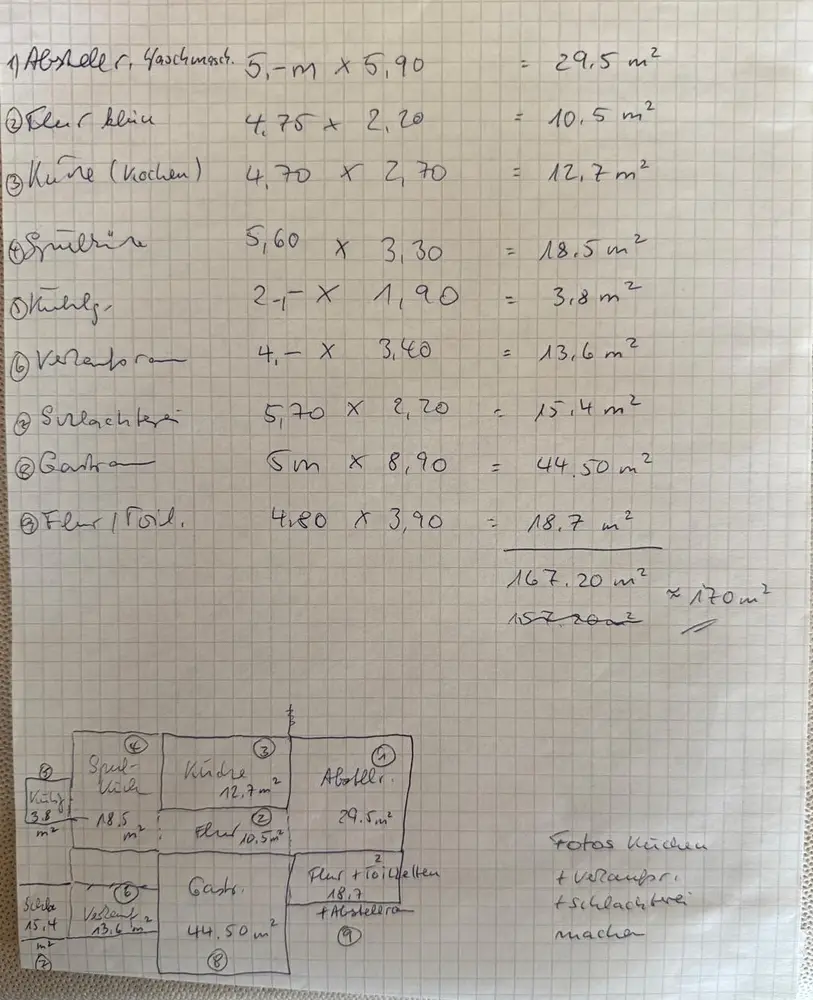 1) Abstellr. Waschmasch. 5,-m x 5,90 = 29.5 m²
② Flur klein 4,75 x 2,20 = 10.5 m²
③ Küche (Kochen) 4,70 x 2,70 = 12,7 m²
④ Spülküche 5,60 x 3,30 = 18.5 m²
⑤ Kühlg. 2,- x 1,90 = 3,8 m²
⑥ Verkaufsraum 4,- x 3,40 = 13,6 m²
⑦ Schlachterei 5,70 x 2,20 = 15,4 m²
⑧ Gastraum 5m x 8,90 = 44.50 m²
⑨ Flur / Toil. 4,80 x 3,90 = 18.7 m²
167.20 m² ≈ 170 m²
157.20 m²
④ Spül-
küch
18,5 m²
③ Küche
12,7 m²
① Abstellr.
29.5 m²
⑤ Kühlg
3.8 m²
② Flur 10.5 m²
Flur + Toiletten
18,7 ²
+ Abstellra
⑨
15,4 m²
⑦
⑥ Verkauf
13.6 m²
Gastr.
44.50 m²
⑧
Fotos Küchen
+ Verkaufsr.
+ Schlachterei
machen